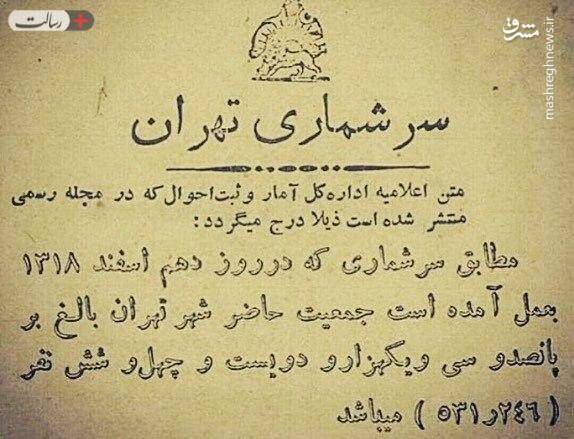 رسالت +
مشرق
mashreghnews.ir
سرشماری تهران
متن اعلامیه اداره کل آمار و ثبت احوال که در مجله رسمی
منتشر شده است ذیلا درج میگردد:
مطابق سرشماری که در روز دهم اسفند ۱۳۱۸
بعمل آمده است جمعیت حاضر شهر تهران بالغ بر
پانصد و سی و یکهزار و دویست و چهل و شش نفر
(۵۳۱ر۲۴۶) میباشد